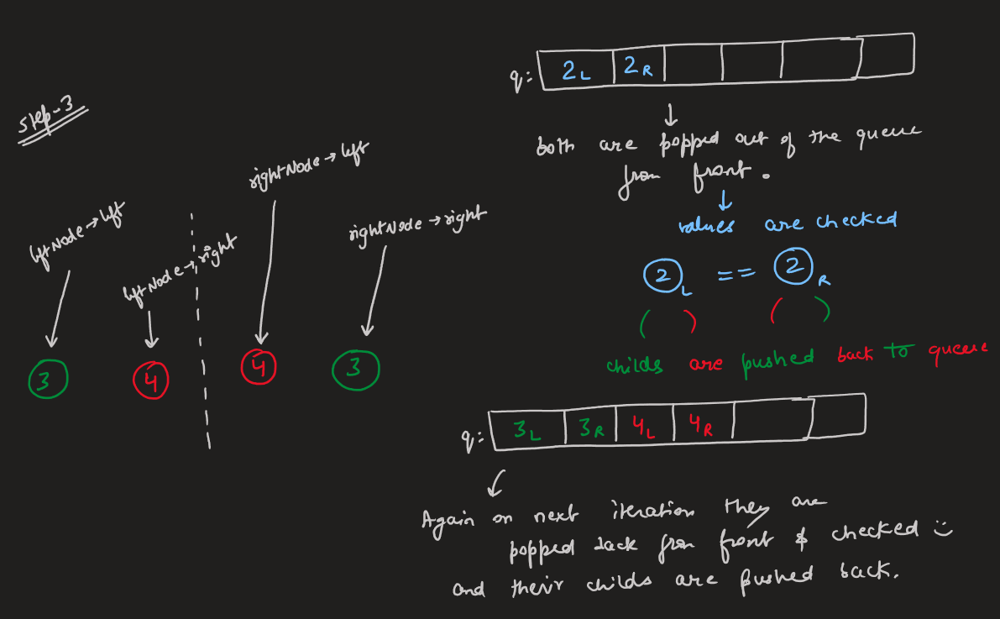 Step-3
leftNode→left
leftNode→right
rightNode→left
rightNode→right
3
4
4
3
q: 2L 2R
both are popped out of the queue
from front.
values are checked
2 L == 2 R
childs are pushed back to queue
q: 3L 3R 4L 4R
Again on next iteration they are
popped back from front & checked
and their childs are pushed back.